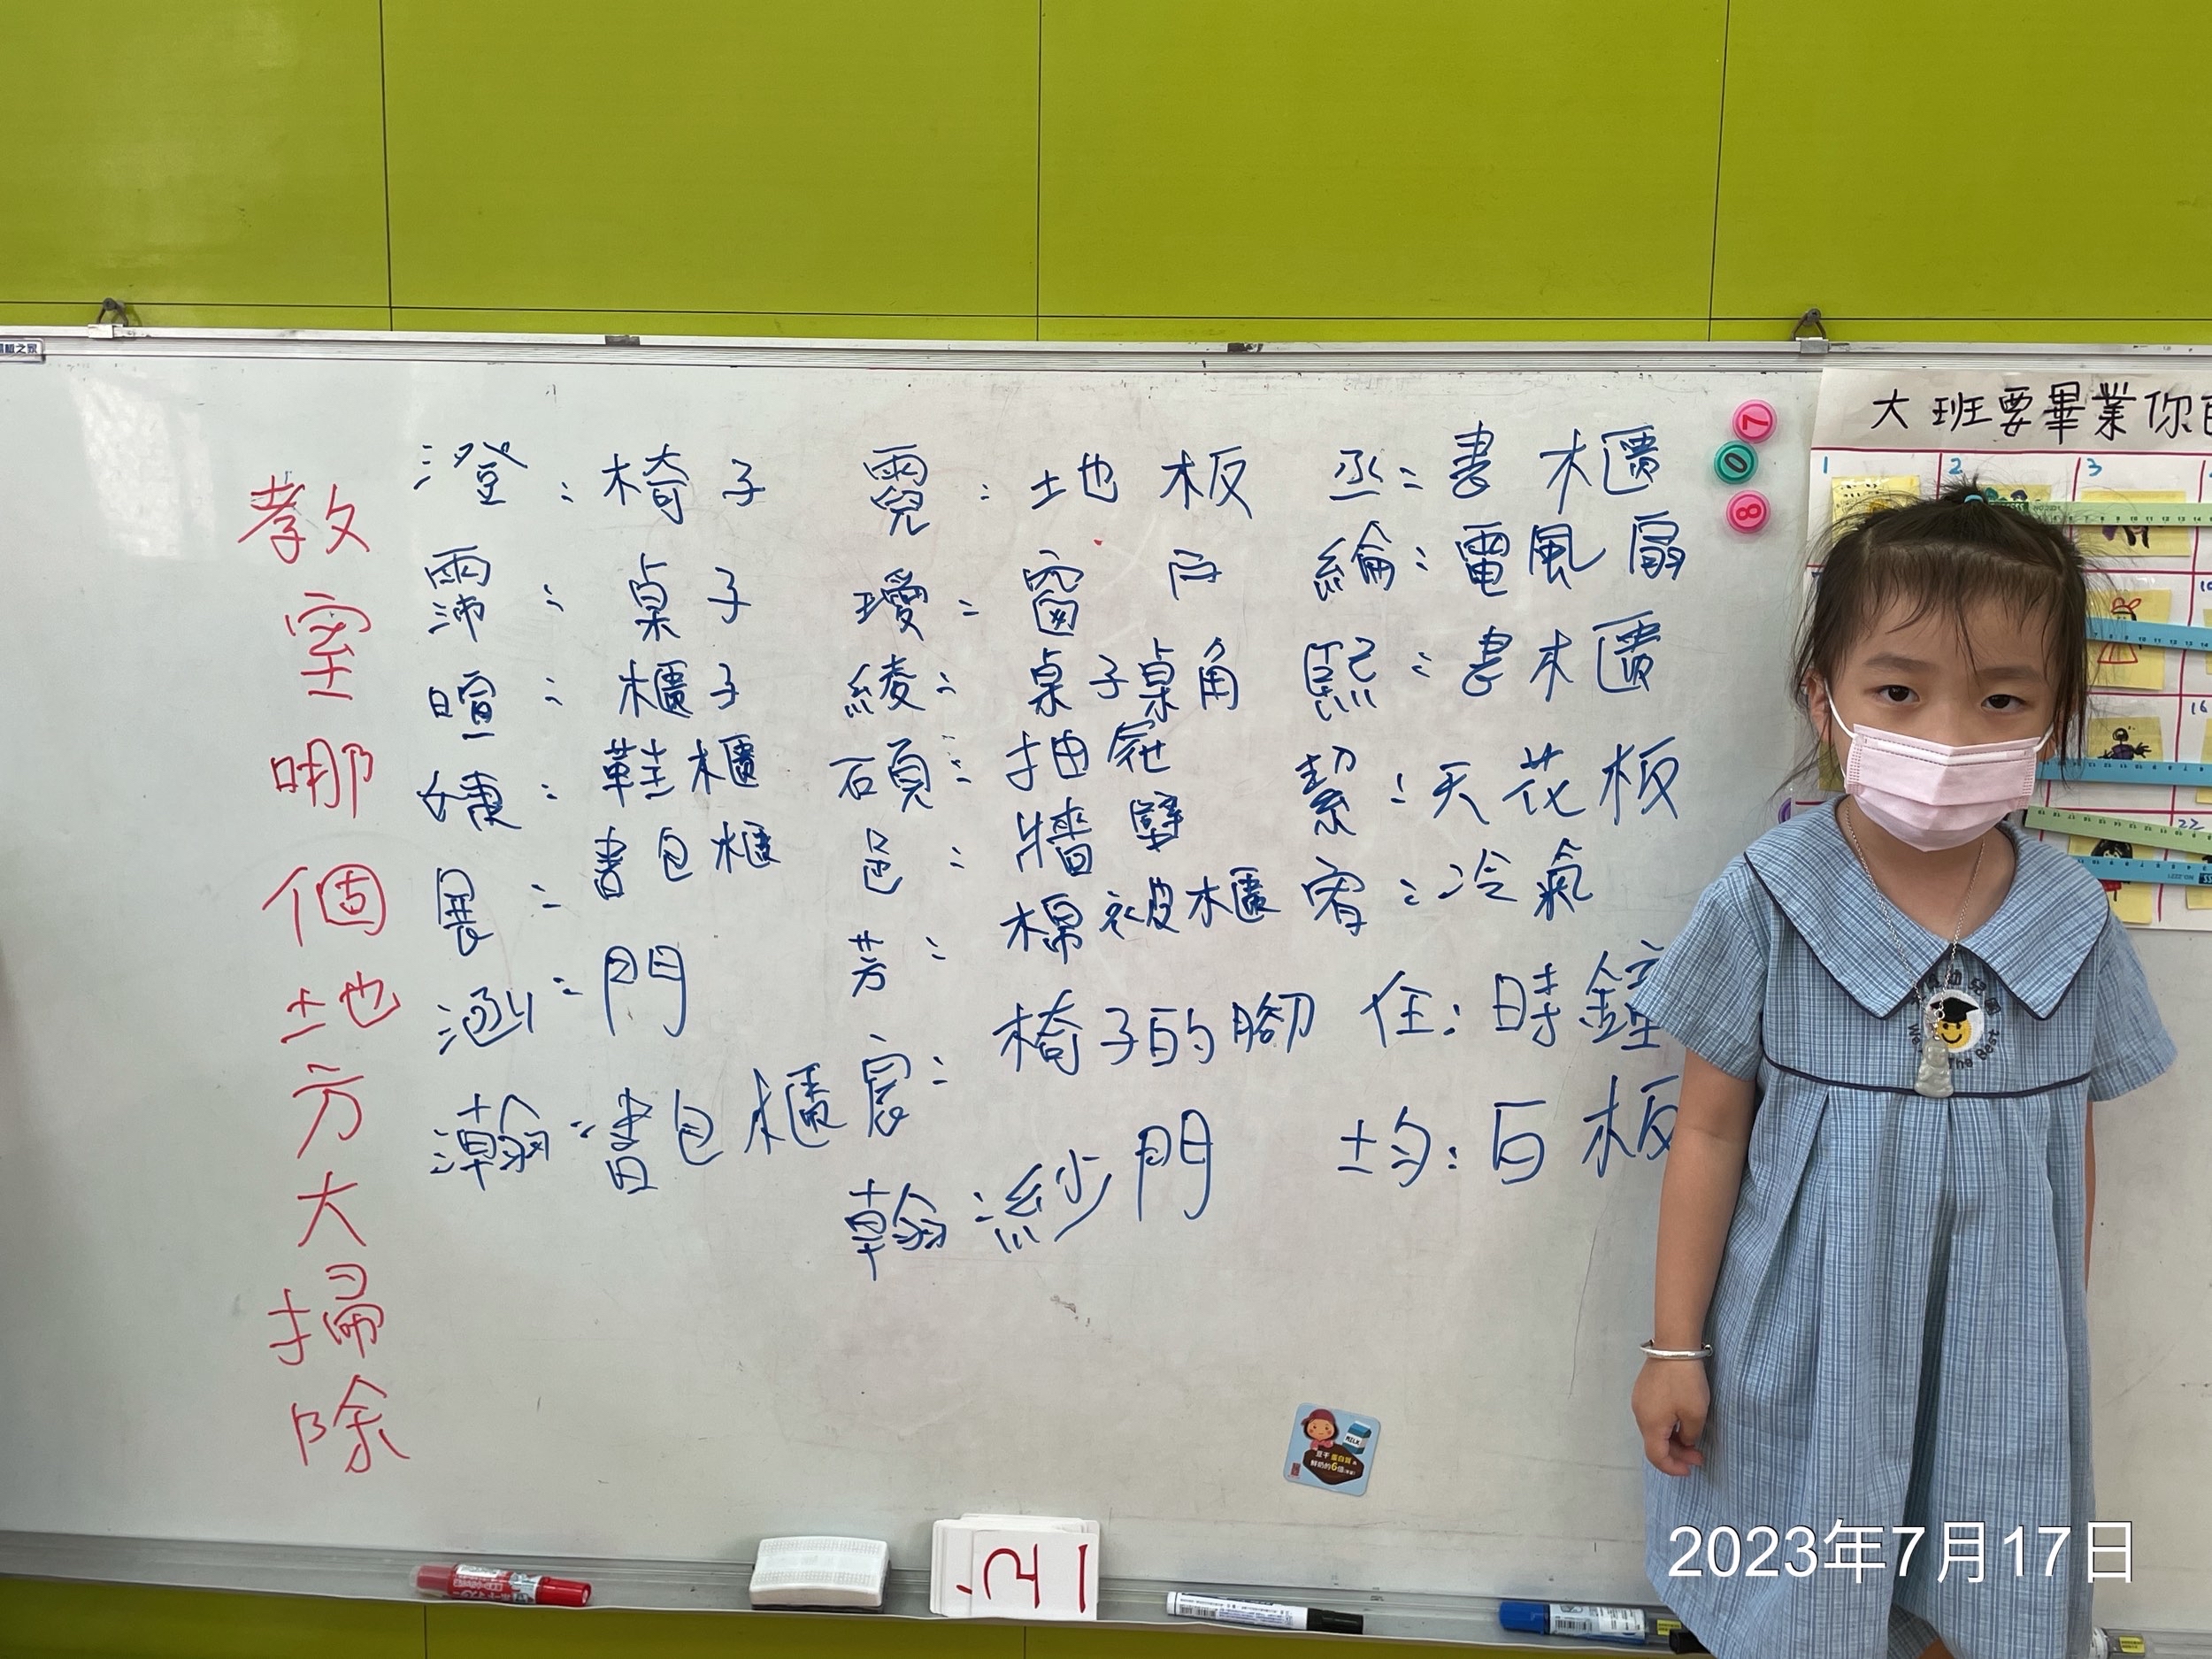 教室哪個地方大掃除
澄：椅子
霈：桌子
暄：櫃子
婕：鞋櫃
展：書包櫃
涵：門
瀚：書包櫃
霓：地板
璦：窗戶
綾：桌子桌角
碩：抽屜
邑：牆壁
芳：棉被櫃
宸：椅子的腳
翰：紗門
丞：書櫃
綸：電風扇
熙：書櫃
絜：天花板
宥：冷氣
住：時鐘
均：白板
7
0
8
大班要畢業你
1
2
3
16
22
We
The Best
MILK
2023年7月17日